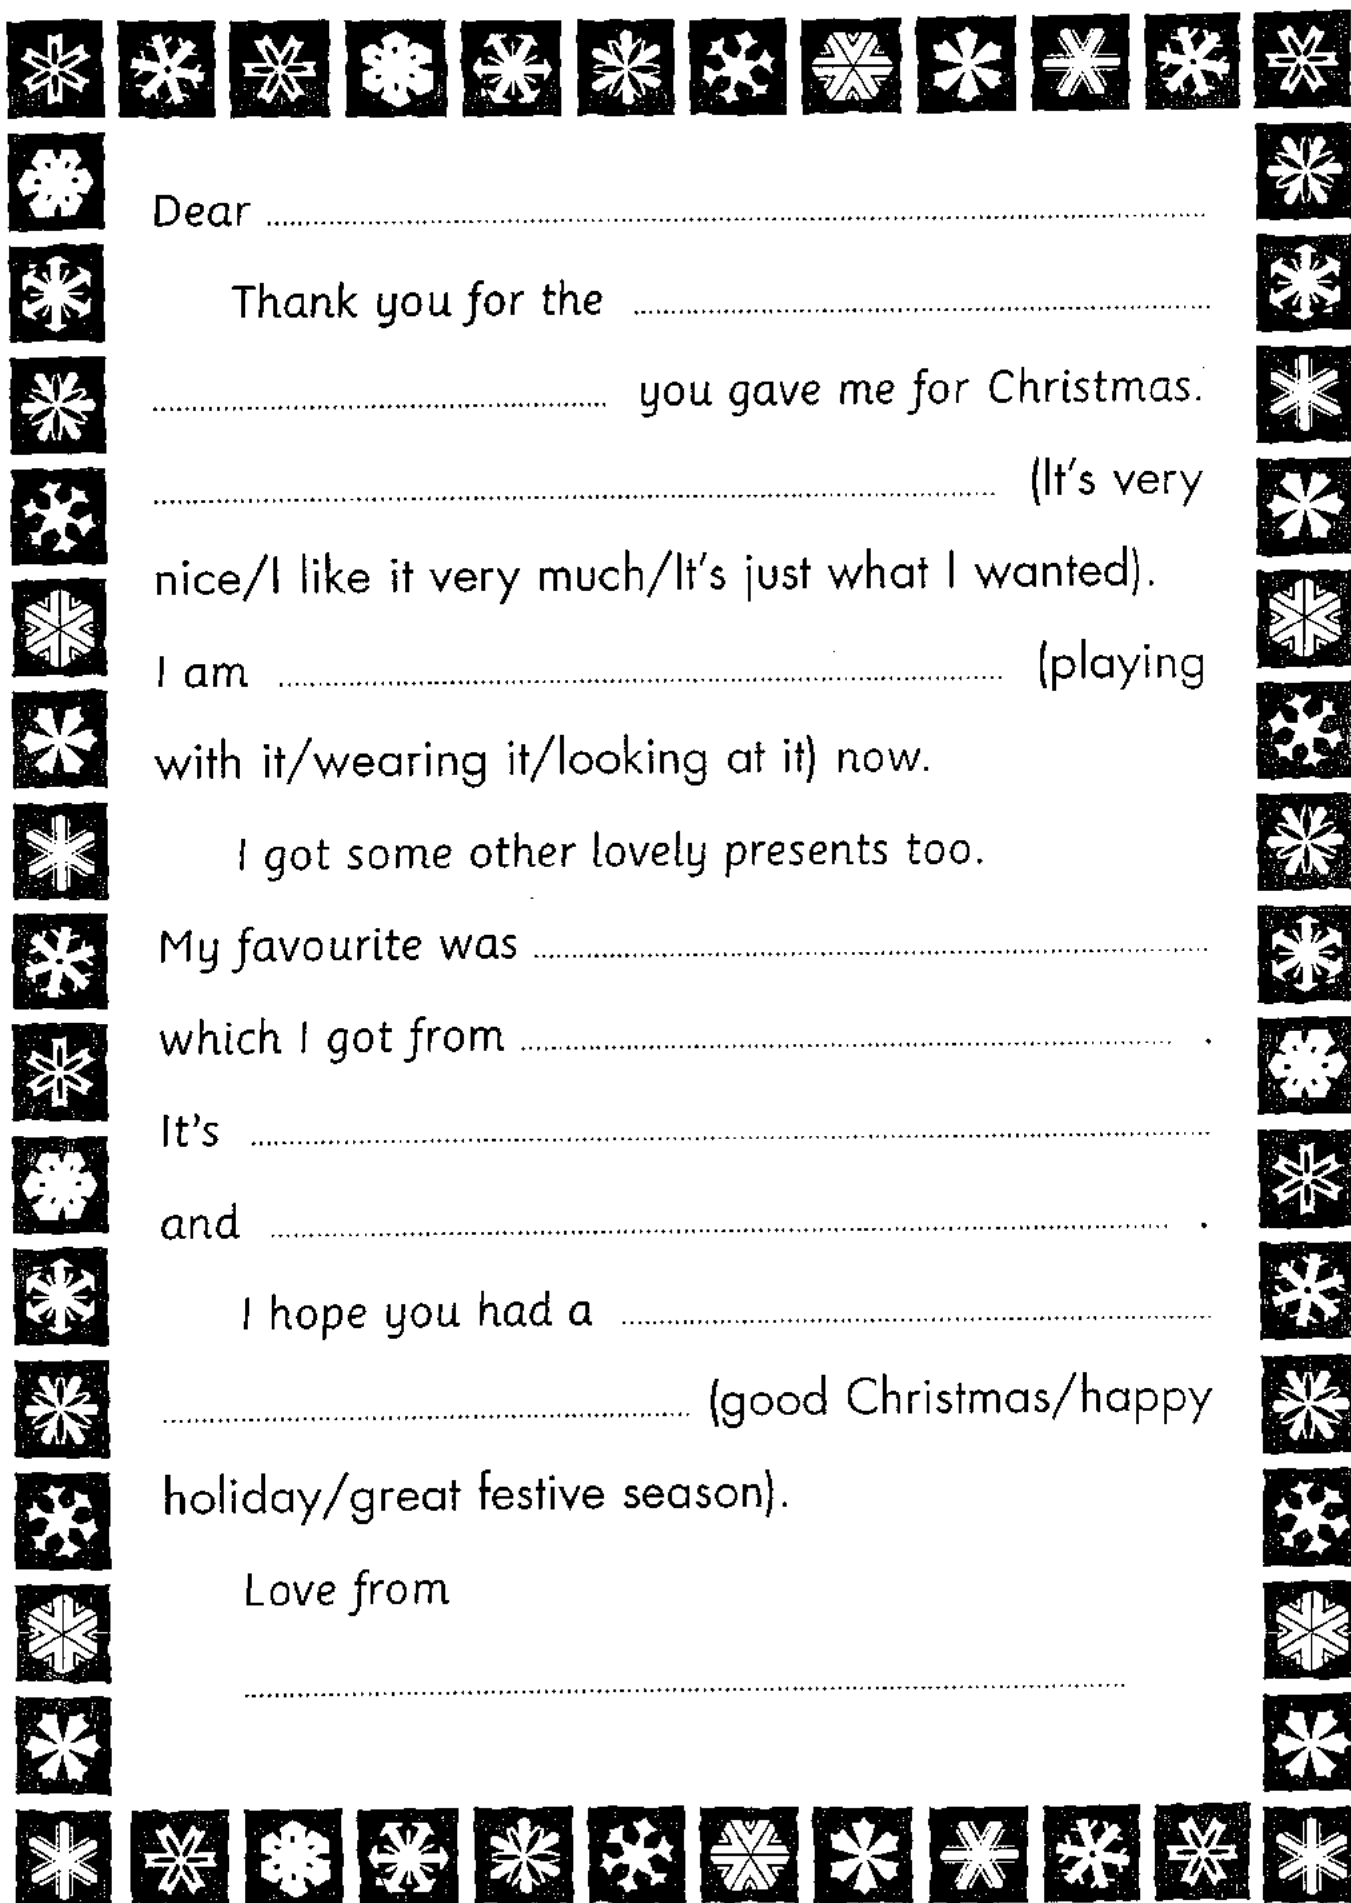 Dear
Thank you for the
you gave me for Christmas.
(It's very
nice/I like it very much/It's just what I wanted).
I am (playing
with it/wearing it/looking at it) now.
I got some other lovely presents too.
My favourite was
which I got from .
It's
and .
I hope you had a
(good Christmas/happy
holiday/great festive season).
Love from